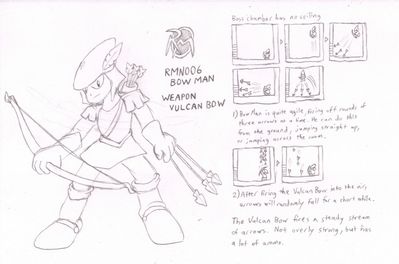 RMN006
BOW MAN
WEAPON
VULCAN BOW
Boss chamber has no ceiling
1) Bow Man is quite agile, firing off rounds of
three arrows at a time. He can do this
from the ground, jumping straight up,
or jumping across the room.
2) After firing the Vulcan Bow into the air,
arrows will randomly fall for a short while.
The Vulcan Bow fires a steady stream
of arrows. Not overly strong, but has
a lot of ammo.